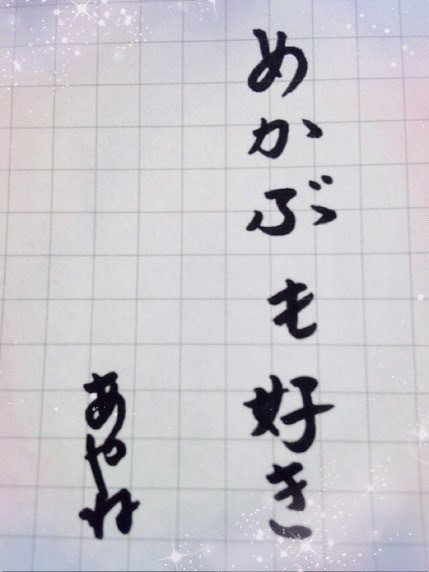 めかぶも好き
あやね